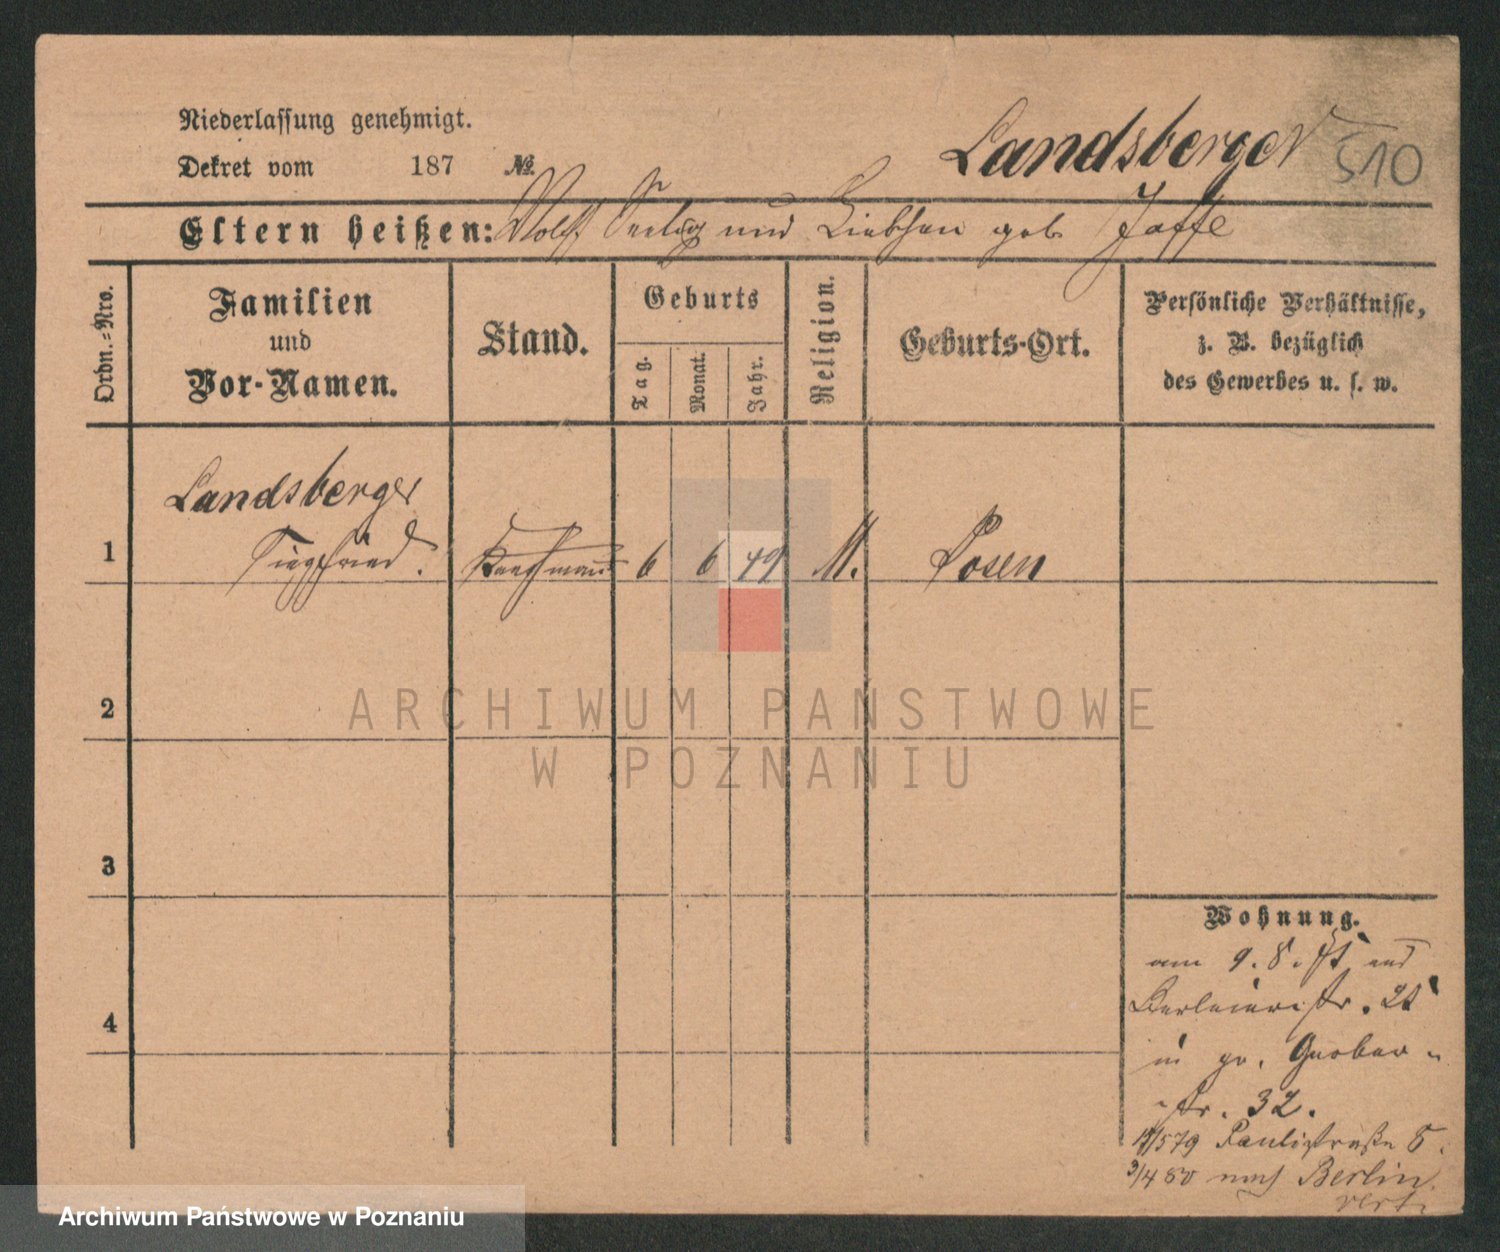 Niederlassung genehmigt.
Dekret vom 187 №
Landsberger 510
Eltern heißen: Wolff Seelig und Liebchen geb Jaffe
Ordn.=Nro.
Familien
und
Vor-Namen.
Stand.
Geburts
Tag.
Monat.
Jahr.
Religion.
Geburts-Ort.
Persönliche Verhältnisse,
z. B. bezüglich
des Gewerbes u. s. w.
Landsberger
1 Siegfried. Kaufmann 6 6 49 M. Posen
2
ARCHIWUM PAŃSTWOWE
W POZNANIU
3
Wohnung.
am 9. 8. aus
str.
4
in gr. Gerber-
str. 32.
579 Paulistraße 5.
3/4 80 nach Berlin
verz.
Archiwum Państwowe w Poznaniu